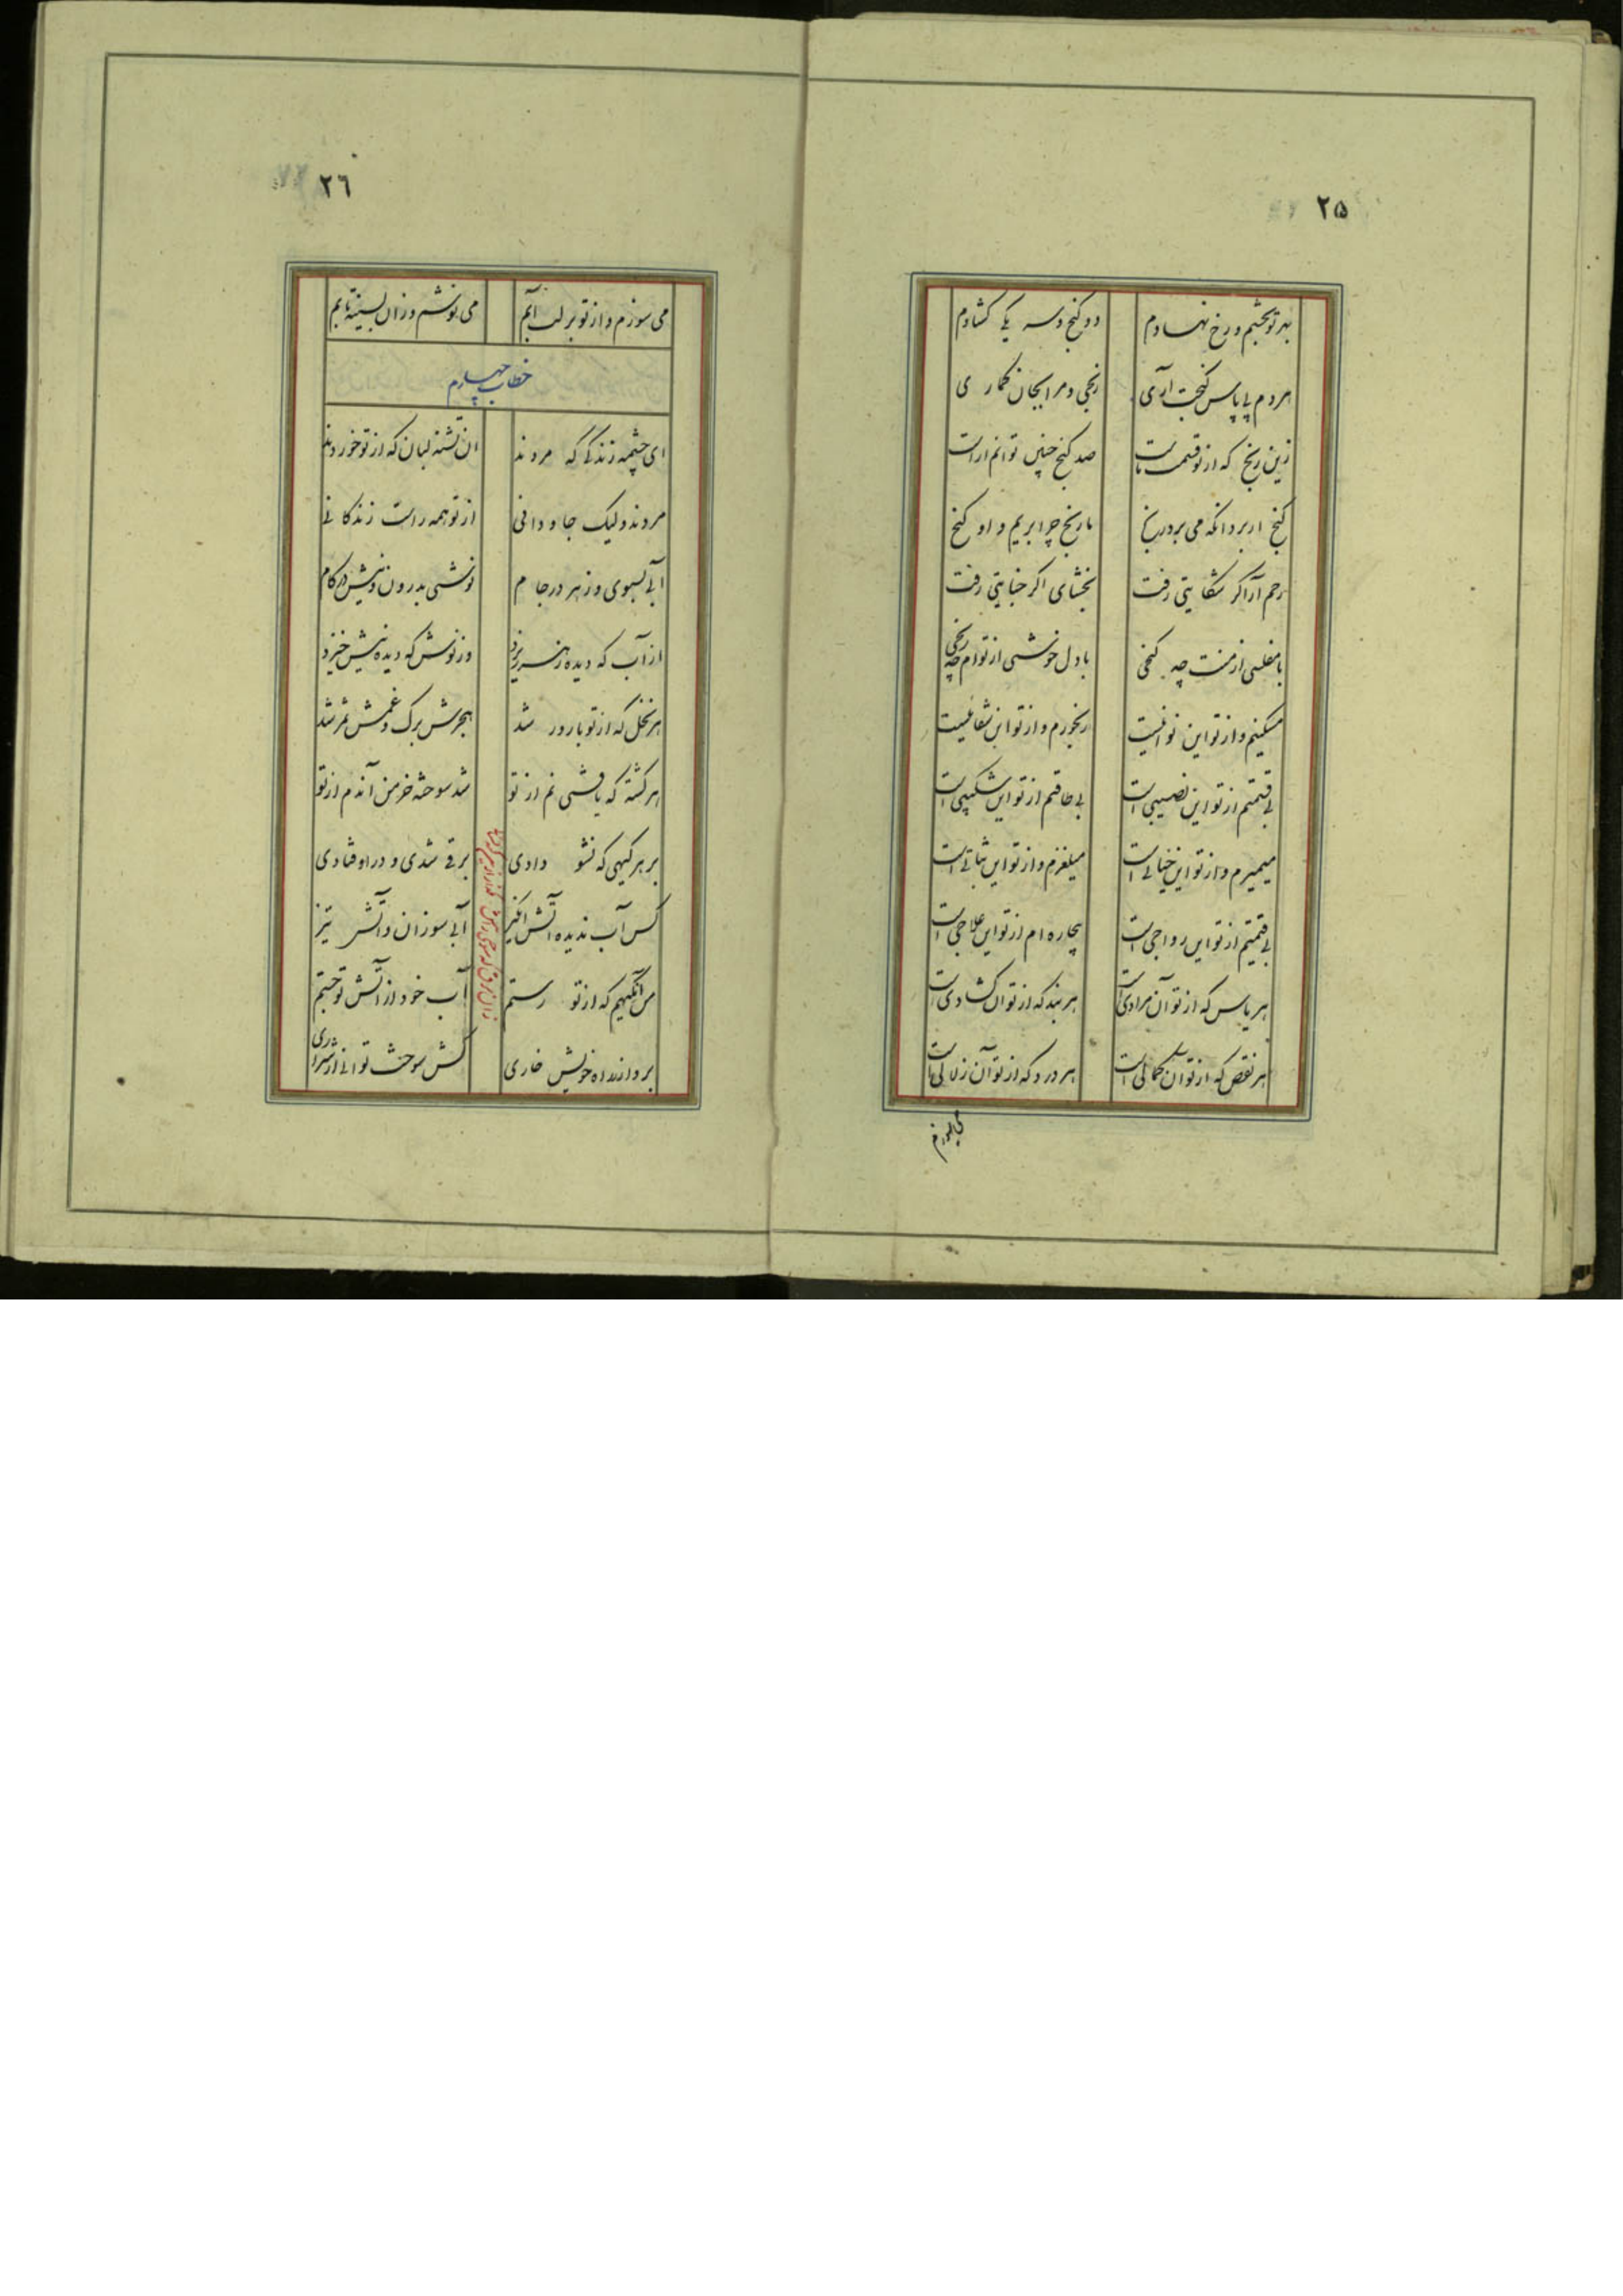 ٢۵
بهر تو بچشم و رخ نهادم دو گنج و سه یک گشادم
هر دم پی پاس گنجت آری رنجی و مرا بجان گماری
زین رنج که از تو قسمت ماست صد گنج چنین توانم آراست
گنج ار برد آنکه می برد رنج ما رنج چرا بریم و او گنج
رحم آر اگر شکایتی رفت بخشای اگر جنایتی رفت
با مفلسی از منت چه گنجی با دل خوشی از توام چه رنجی
مسکینم و از تو این نوائیست رنجورم و از تو این شفائیست
بی قسمتم از تو این نصیبی است بی طاقتم از تو این شکیبی است
میمیرم و از تو این خیالی است میلغزم و از تو این ثباتی است
بی قیمتم از تو این رواجی است بیچاره ام از تو این علاجی است
هر یاس که از تو آن مرادی است هر بند که از تو آن گشادی است
هر نقص که از تو آن کمالی است هر درد که از تو آن زلالی است
می سوزم
٢٦
می سوزم و از تو بر لب آبم می نوشم و زان بسینه تابم
خطاب چهارم
ای چشمه زندگی که مردند آن تشنه لبان که از تو خوردند
مردند ولیک جاودانی از تو همه راست زندگانی
آبی بسبوی و زهر در جام نوشی بدرون و نیش در کام
از آب که دیده زهر ریزد وز نوش که دیده نیش خیزد
هر نخل که از تو بارور شد هجرش برگ و غمش ثمر شد
هر کشته که یافتی نم از تو شد سوخته خرمن آندم از تو
بر هر گیهی که نشو دادی برقی شدی و در او فتادی
کس آب ندیده آتش انگیز آبی سوزان و آتشی تیز
من آن گیهم که از تو رستم آب خود از آتش تو جستم
بر دار ز راه خویش خاری کش سوخت توانی از شراری